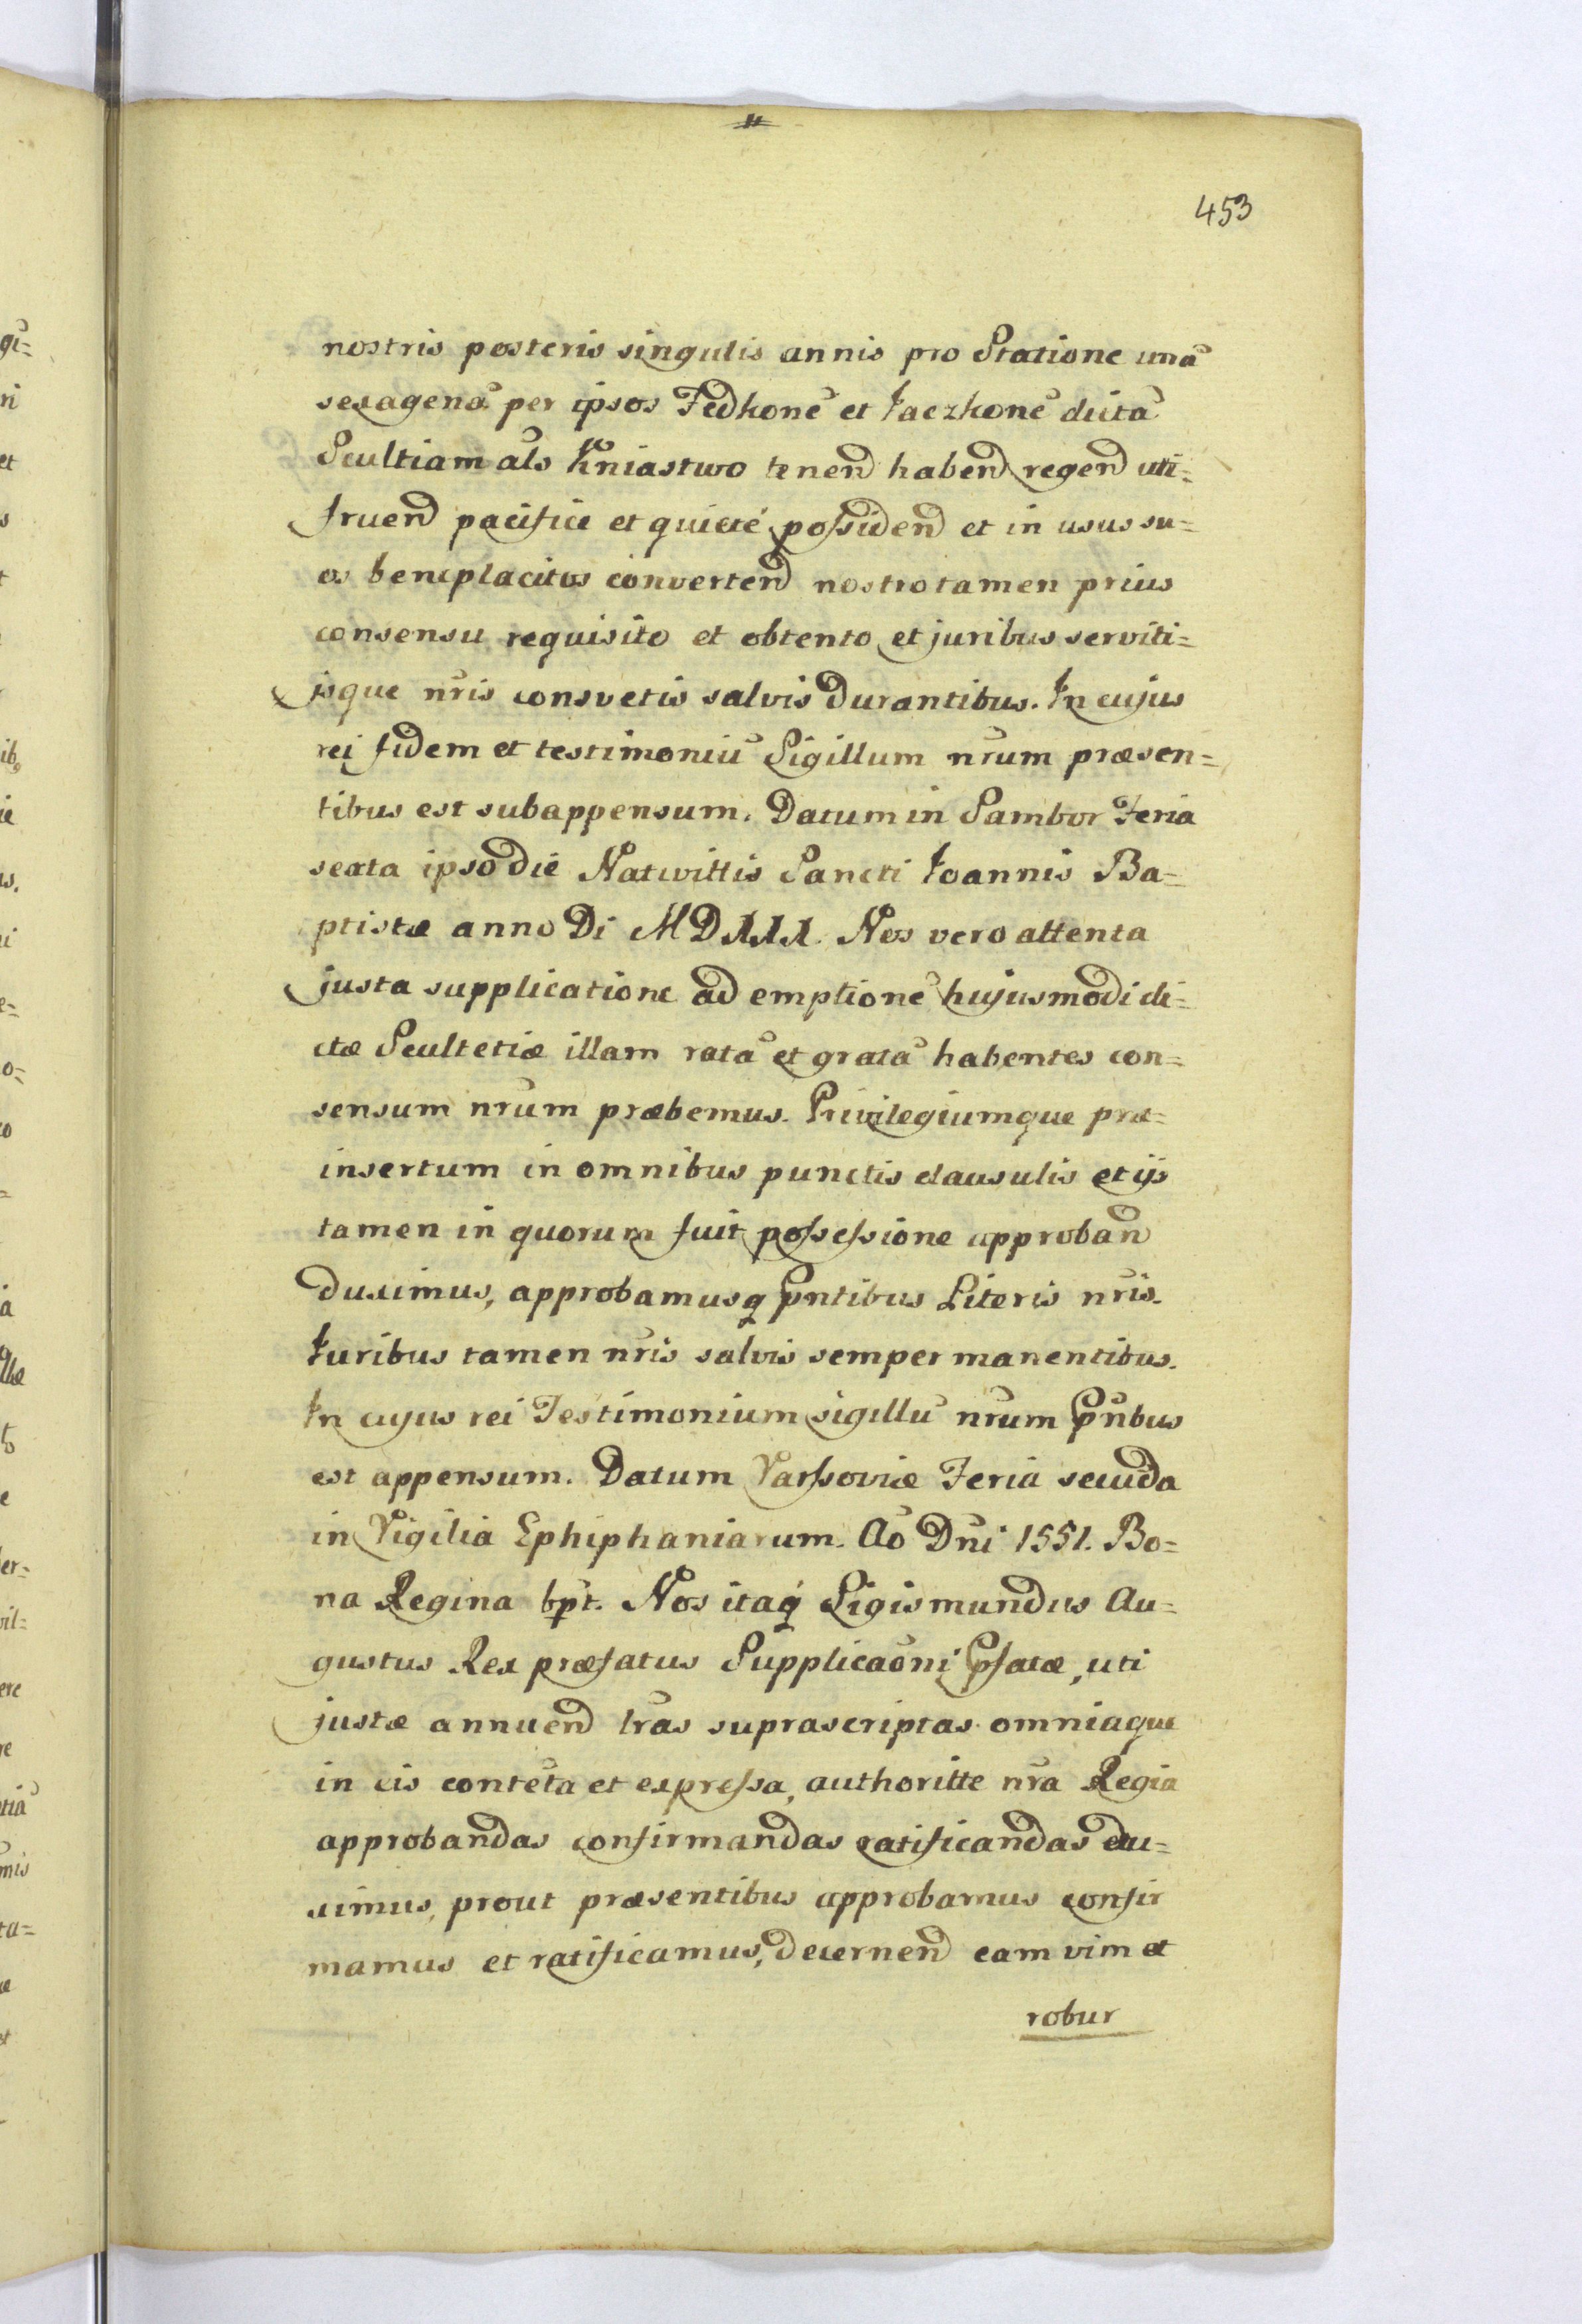 453
nostris posteris singulis annis pro Statione unā
sexagenā per ipsos Fedkonē et Jaczkonē dictā
Scultiam als Kniastwo tenen̄d haben̄d regen̄d uti=
fruen̄d pacifice et quieté possiden̄d et in usus su=
os beneplacitos converten̄d nostro tamen prius
consensu requisito et obtento et juribus serviti=
jsque nr̄is consvetis salvis durantibus. In cujus
rei fidem et testimoniū Sigillum nr̄um præsen=
tibus est subappensum. Datum in Sambor Feria
sexta ipso die Nativittis Sancti Joannis Ba=
ptistæ anno Di MDXXX. Nos vero attenta
justa supplicatione ad emptionē hujusmodi di=
ctæ Scultetiæ illam ratā et gratā habentes con=
sensum nr̄um præbemus. Privilegiumque præ=
insertum in omnibus punctis clausulis et ijs
tamen in quorum fuit possessione approban̄d
duximus, approbamusq pntibus Literis nr̄is.
Juribus tamen nr̄is salvis semper manentibus.
In cujus rei Testimonium sigillū nr̄um pn̄bus
est appensum. Datum Varssoviæ Feria secūda
in Vigilia Ephiphaniarum. Aō Dn̄i 1551. Bo=
na Regina bpt. Nos itaq́ Sigismundus Au=
gustus Rex præfatus Supplicaōni pfatæ, uti
justæ annuen̄d lr̄as suprascriptas omniaque
in eis contēta et expressa, authoritte nr̄a Regia
approbandas confirmandas ratificandas du=
ximus, prout præsentibus approbamus confir
mamus et ratificamus, decernen̄d eam vim et
robur